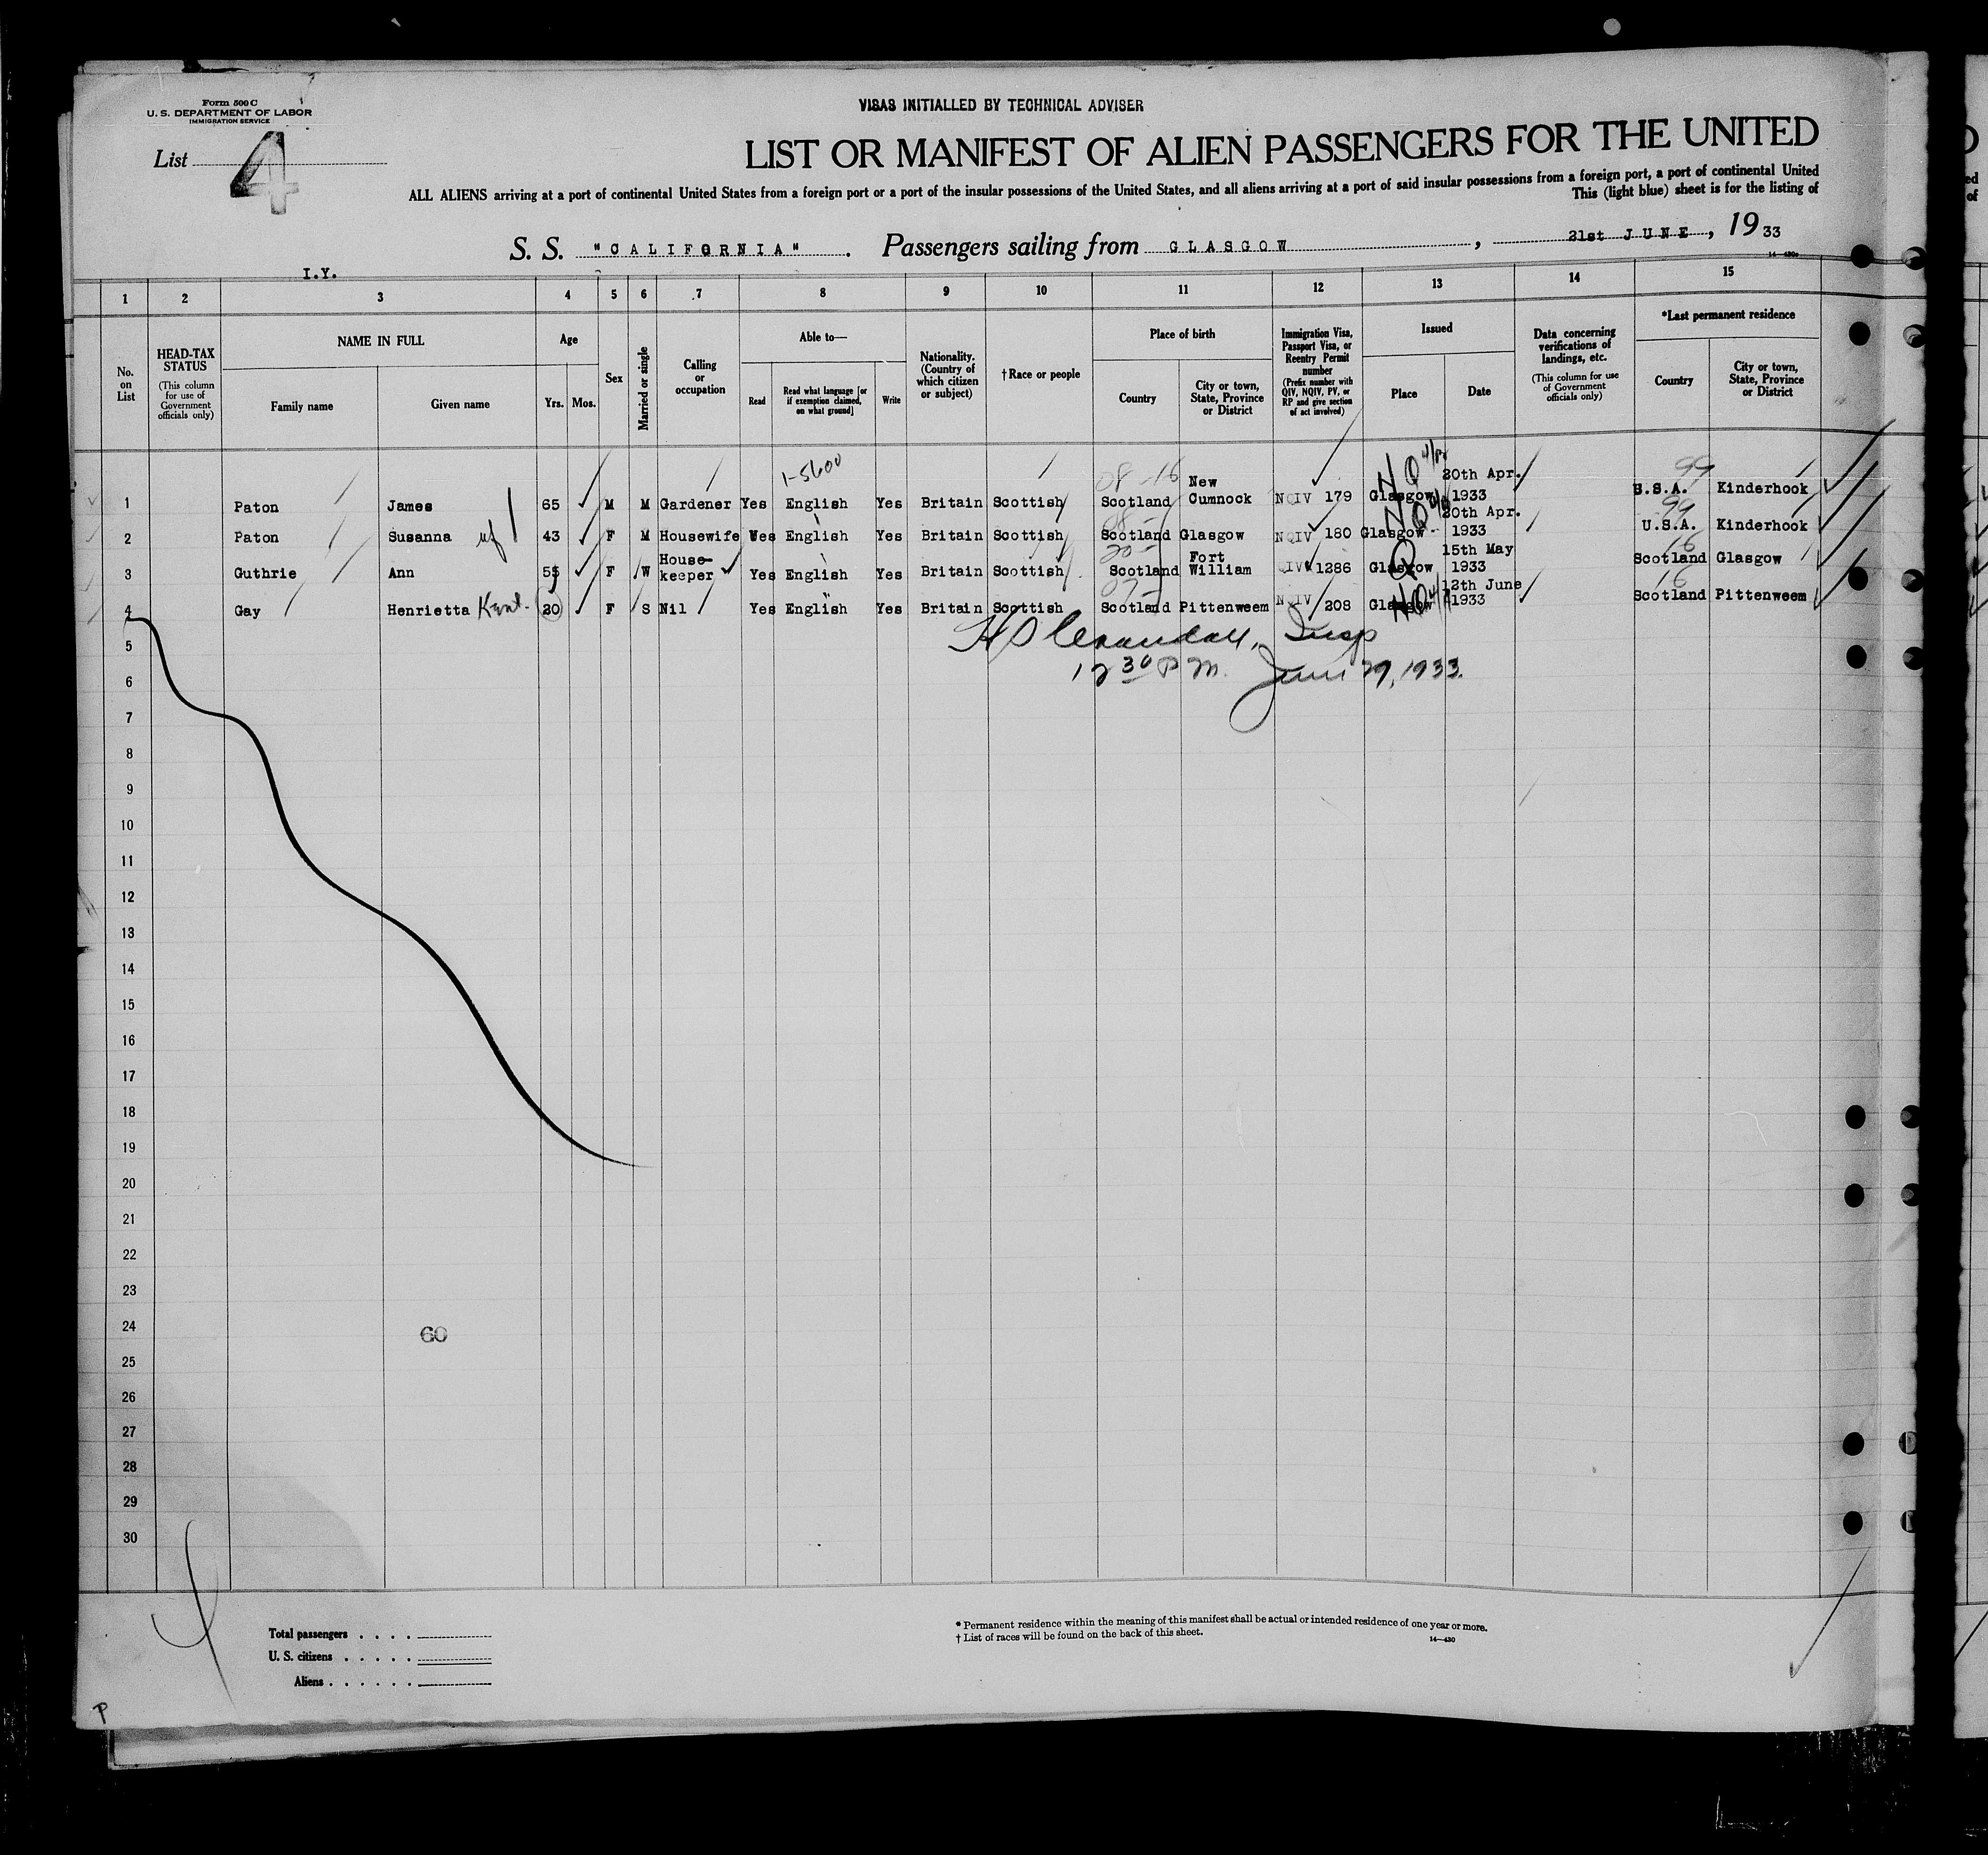 Form 500 C
U. S. DEPARTMENT OF LABOR
IMMIGRATION SERVICE
VISAS INITIALLED BY TECHNICAL ADVISER
List 4
LIST OR MANIFEST OF ALIEN PASSENGERS FOR THE UNITED
ALL ALIENS arriving at a port of continental United States from a foreign port or a port of the insular possessions of the United States, and all aliens arriving at a port of said insular possessions from a foreign port, a port of continental United
This (light blue) sheet is for the listing of
S. S. "CALIFORNIA". Passengers sailing from GLASGOW, 21st JUNE, 1933
I.Y.
1 2 3 4 5 6 7 8 9 10 11 12 13 14 15
No. on List
HEAD-TAX STATUS
(This column for use of Government officials only)
NAME IN FULL
Family name Given name
Age
Yrs. Mos.
Sex
Married or single
Calling or occupation
Able to—
Read
Read what language [or if exemption claimed, on what ground]
Write
Nationality. (Country of which citizen or subject)
†Race or people
Place of birth
Country
City or town, State, Province or District
Immigration Visa, Passport Visa, or Reentry Permit number
(Prefix number with QIV, NQIV, PV, or RP and give section of act involved)
Issued
Place Date
Data concerning verifications of landings, etc.
(This column for use of Government officials only)
*Last permanent residence
Country
City or town, State, Province or District
1-5600
08-16 NQ 99
1 Paton James 65 M M Gardener Yes English Yes Britain Scottish Scotland New Cumnock NQIV 179 Glasgow 20th Apr. 1933 U.S.A. Kinderhook
08- NQ 99
2 Paton Susanna wf 43 F M Housewife Yes English Yes Britain Scottish Scotland Glasgow NQIV 180 Glasgow 20th Apr. 1933 U.S.A. Kinderhook
20- Q 16
3 Guthrie Ann 55 F W House-keeper Yes English Yes Britain Scottish Scotland Fort William QIV 1286 Glasgow 15th May 1933 Scotland Glasgow
07- NQ 16
4 Gay Henrietta 20 F S Nil Yes English Yes Britain Scottish Scotland Pittenweem NQIV 208 Glasgow 12th June 1933 Scotland Pittenweem
5 Insp
6 12 30 P M. June 29, 1933.
7
8
9
10
11
12
13
14
15
16
17
18
19
20
21
22
23
24 60
25
26
27
28
29
30
Total passengers . . . .
U. S. citizens . . . . .
Aliens . . . . . .
* Permanent residence within the meaning of this manifest shall be actual or intended residence of one year or more.
† List of races will be found on the back of this sheet.
14—430
P